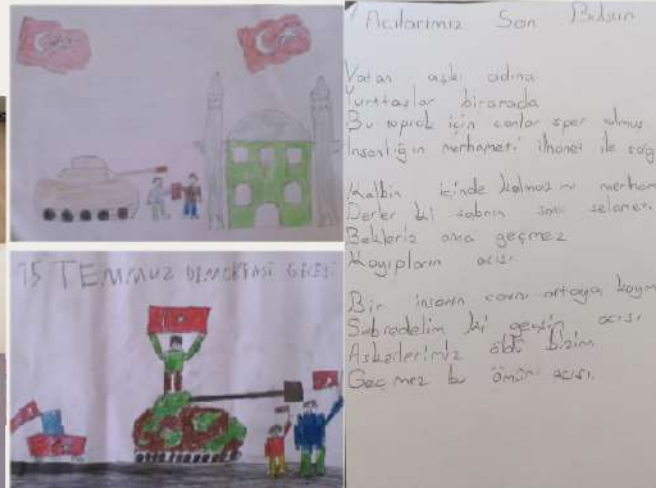 15 TEMMUZ DEMOKRASİ GECESİ
Acılarımız Son Bulsun
Vatan aşkı adına
Yurttaşlar birarada
Bu toprak için canlar siper olmuş
İnsanlığın merhameti ihanet ile
Kalbin içinde kalmaz mı
Derler ki sabrın sonu
Bekleriz ama geçmez
Kayıpların acısı
Bir insanın canını ortaya
Sabredelim ki geçsin acısı
Askerlerimiz öldü bizim
Geçmez bu ömür acısı.